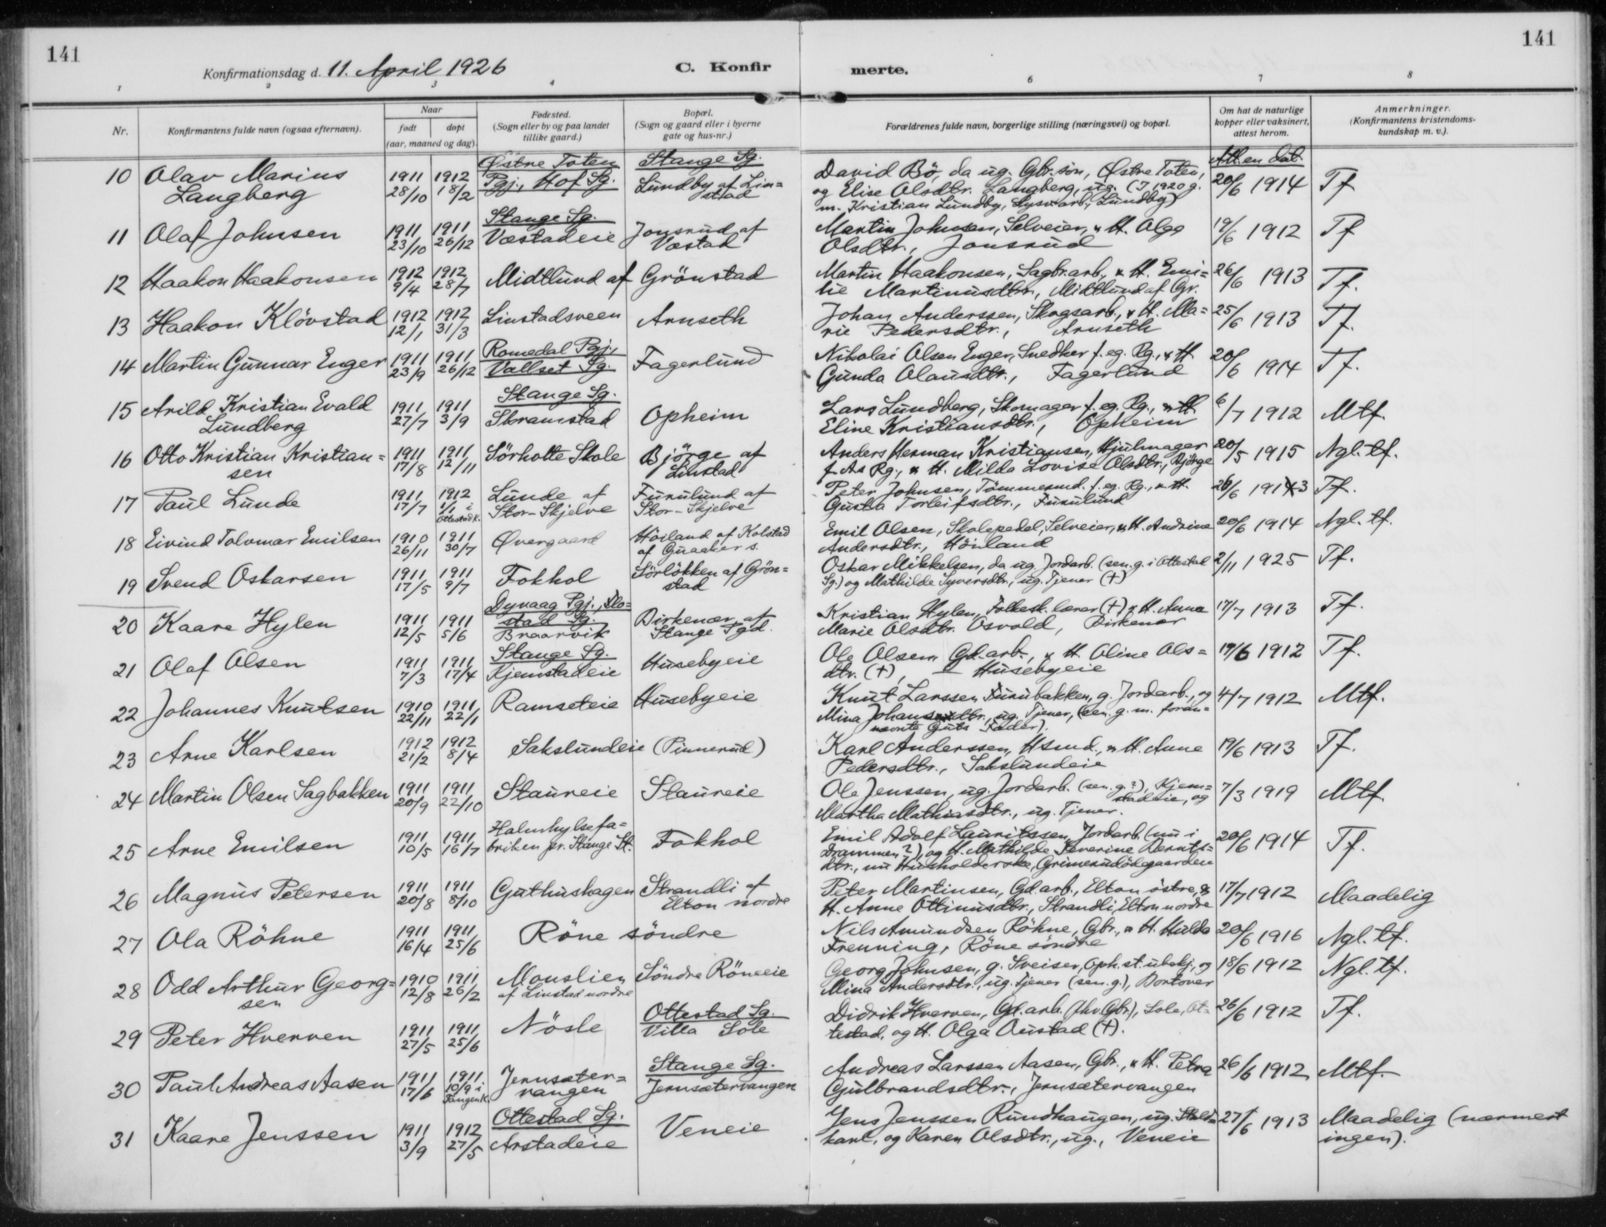 141
Konfirmationsdag d. 11. April 1926
C. Konfirmerte.
141
1 2 3 4 6 7 8
Nr.
Konfirmantens fulde navn (ogsaa efternavn).
Naar
født døpt
(aar, maaned og dag).
Fødested.
(Sogn eller by og paa landet
tillike gaard.)
Bopæl.
(Sogn og gaard eller i byerne
gate og hus-nr.)
Forældrenes fulde navn, borgerlige stilling (næringsvei) og bopæl.
Om hat de naturlige
kopper eller vaksinert,
attest herom.
Anmerkninger.
(Konfirmantens kristendoms-
kundskap m. v.).
10 Olav Marius Langberg 1911 28/10 1912 18/2 Østre Toten Pgj., Hof Sg. Stange Sg. Lundby af Linstad
David Bö, da ug. Gbr. sön, Østre Toten,
og Elise Olsdtr. Langberg, ug. (I 1920 g.
m. Kristian Lundby, Sysv.arb., Lundby)
Att. en dat. 20/6 1914 Tf
11 Olaf Johnsen 1911 23/10 1911 26/12 Stange Sg. Væstadeie Jonsrud af Væstad
Martin Johnsen, Selveier, & H. Olga
Olsdtr., Jonsrud
19/6 1912 Tf
12 Haakon Haakonsen 1912 9/4 1912 28/7 Midtlund af Grönstad
Martin Haakonsen, Sagbr.arb., & H. Emi=
lie Martinusdtr., Midtlund af Gr.
26/6 1913 Tf.
13 Haakon Klövstad 1912 12/1 1912 31/3 Linstadsveen Arnseth
Johan Anderssen, Skogsarb., & H. Ma=
rie Pedersdtr., Arnseth
25/6 1913 Tf.
14 Martin Gunnar Enger 1911 23/9 1911 26/12 Romedal Pgj., Vallset Sg. Fagerlund
Nikolai Olsen Enger, Snedker f. eg. Rg., & H.
Gunda Olausdtr., Fagerlund
20/6 1914 Tf.
15 Arild Kristian Evald Lundberg 1911 27/7 1911 3/9 Stange Sg. Skramstad Opheim
Lars Lundberg, Skomager f. eg. Rg., & H.
Eline Kristiansdtr., Opheim
6/7 1912 Mtf.
16 Otto Kristian Kristian=
sen 1911 17/8 1911 12/11 Sörholte Skole Björge af Linstad
Anders Herman Kristiansen, Hjulmager
f. As Rg., & H. Milda Lovise Olsdtr., Björge
20/5 1915 Ngl. tf.
17 Paul Lunde 1911 17/7 1912 1/1 i Ottestad k. Lunde af Stor-Skjelve Furulund af Stor-Skjelve
Peter Johnsen, Tömmermd. f. eg. Rg., & H.
Gusta Torleifsdtr., Furulund
26/6 1913 Tf.
18 Eivind Tolvmar Emilsen 1910 26/11 1911 30/7 Øvergaard Höiland af Kolstad
Emil Olsen, Skolepedel, Selveier, & H. Andrine
Andersdtr., Höiland
20/6 1914 Ngl. tf.
19 Svend Oskarsen 1911 17/5 1911 9/7 Fokhol Sörlökken af Grön=
stad
Oskar Mikkelsen, da ug. Jordarb. (sen. g. i Ottestad
Sg.) og Mathilde Syversdtr., ug. Tjener (†)
2/11 1925 Tf.
20 Kaare Hylen 1911 12/5 1911 5/6 Dynaag Pgj., Flo=
stad Sg. Braarvik Birkenær af Stange Pgd.
Kristian Hylen, Folkesk.lærer (†) & H. Anna
Marie Olsdtr. Osvold, Birkenær
17/7 1913 Tf.
21 Olaf Olsen 1911 7/3 1911 17/4 Stange Sg. Kjemstadeie Husebyeie
Ole Olsen, Gd.arb., & H. Oline Ols=
dtr. (†), Husebyeie
19/6 1912 Tf.
22 Johannes Knutsen 1910 22/11 1911 22/1 Ramseteie Husebyeie
Knut Larssen Furubakken, g. Jordarb., og
Mina Johansdtr., ug. Tjener, (sen. g. m. foran=
nævnte Guts Fader).
4/7 1912 Mtf.
23 Arne Karlsen 1912 21/2 1912 8/4 Sakslundeie (Pinnerud)
Karl Anderssen, Hsmd., & H. Anne
Pedersdtr., Sakslundeie
19/6 1913 Tf.
24 Martin Olsen Sagbakken 1911 20/9 1911 22/10 Staureie Staureie
Ole Jenssen, ug. Jordarb. (sen. g.?), Kjem=
stadeie, og
Martha Mathiasdtr., ug. Tjener.
7/3 1919 Mtf.
25 Arne Emilsen 1911 10/5 1911 16/7 Halmhylsefa=
briken pr. Stange St. Fokhol
Emil Adolf Lauritssen, Jordarb. (nu i
Drammen?), og H. Mathilde Severine Bernts=
dtr., nu Husholderske, Grimerudödegaarden
20/6 1914 Tf.
26 Magnus Petersen 1911 20/8 1911 8/10 Guthushagen Strandli af Elton nordre
Peter Martinsen, Gd.arb., Elton östre, &
H. Anne Ottinusdtr., Strandli, Elton nordre
17/7 1912 Maadelig
27 Ola Röhne 1911 16/4 1911 25/6 Röne söndre
Nils Amundsen Röhne, Gbr., & H. Hulda
Frenning, Röne söndre
20/6 1916 Ngl. tf.
28 Odd Arthur Georg=
sen 1910 12/8 1911 26/2 Monslien af Linstad nordre Söndre Röneeie
Georg Johnsen, g. Sveiser, Oph.st. ubekj., og
Mina Andersdtr., ug. Tjener (sen. g.), Bortover
18/6 1912 Ngl. tf.
29 Peter Hverven 1911 27/5 1911 25/6 Nösle Ottestad Sg. Villa Sole
Didrik Hverven, Gd.arb. (hv. Gbr.), Sole, Ot=
testad, og H. Olga Austad (†).
26/6 1912 Tf.
30 Paul Andreas Aasen 1911 17/6 1911 10/9 i Tangen K. Jernsæter=
vangen Stange Sg. Jernsætervangen
Andreas Larssen Aasen, Gbr., & H. Petra
Gulbrandsdtr., Jernsætervangen
26/6 1912 Mtf.
31 Kaare Jenssen 1911 3/9 1912 27/5 Ottestad Sg. Arstadeie Veneie
Jens Jenssen Rundhaugen, ug.
og Karen Olsdtr., ug., Veneie
27/6 1913 Maadelig (nærmest
ingen).